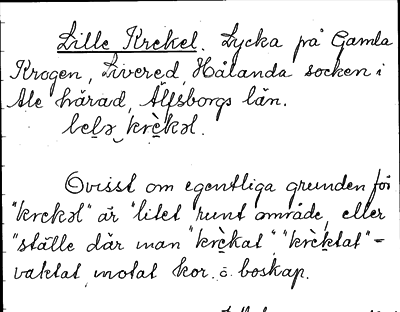 Lille Krekel. Lycka på Gamla
Krogen, Livered, Hålanda socken i
Ale härad, Älfsborgs län.
lɩlə krèkəl.
Ovisst om egentliga grunden för
"krekəl" är "litet runt område, eller
"ställe där man "krèkat", "krèktat" =
vaktat, motat kor. o. boskap.